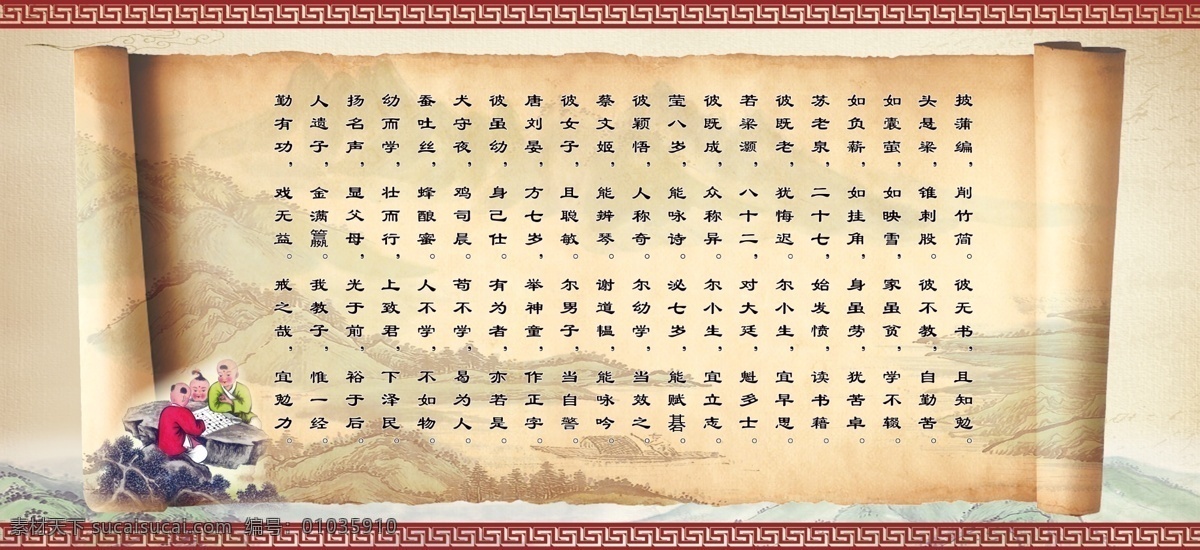 披蒲编，削竹简。彼无书，且知勉。
头悬梁，锥刺股。彼不教，自勤苦。
如囊萤，如映雪。家虽贫，学不辍。
如负薪，如挂角。身虽劳，犹苦卓。
苏老泉，二十七，始发愤，读书籍。
彼既老，犹悔迟。尔小生，宜早思。
若梁灏，八十二，对大廷，魁多士。
彼既成，众称异。尔小生，宜立志。
莹八岁，能咏诗。泌七岁，能赋碁。
彼颖悟，人称奇。尔幼学，当效之。
蔡文姬，能辨琴。谢道韫，能咏吟。
彼女子，且聪敏。尔男子，当自警。
唐刘晏，方七岁，举神童，作正字。
彼虽幼，身己仕。有为者，亦若是。
犬守夜，鸡司晨。苟不学，曷为人。
蚕吐丝，蜂酿蜜。人不学，不如物。
幼而学，壮而行，上致君，下泽民。
扬名声，显父母，光于前，裕于后。
人遗子，金满籯。我教子，惟一经。
勤有功，戏无益。戒之哉，宜勉力。
素材天下 sucaisucai.com 编号：01035910